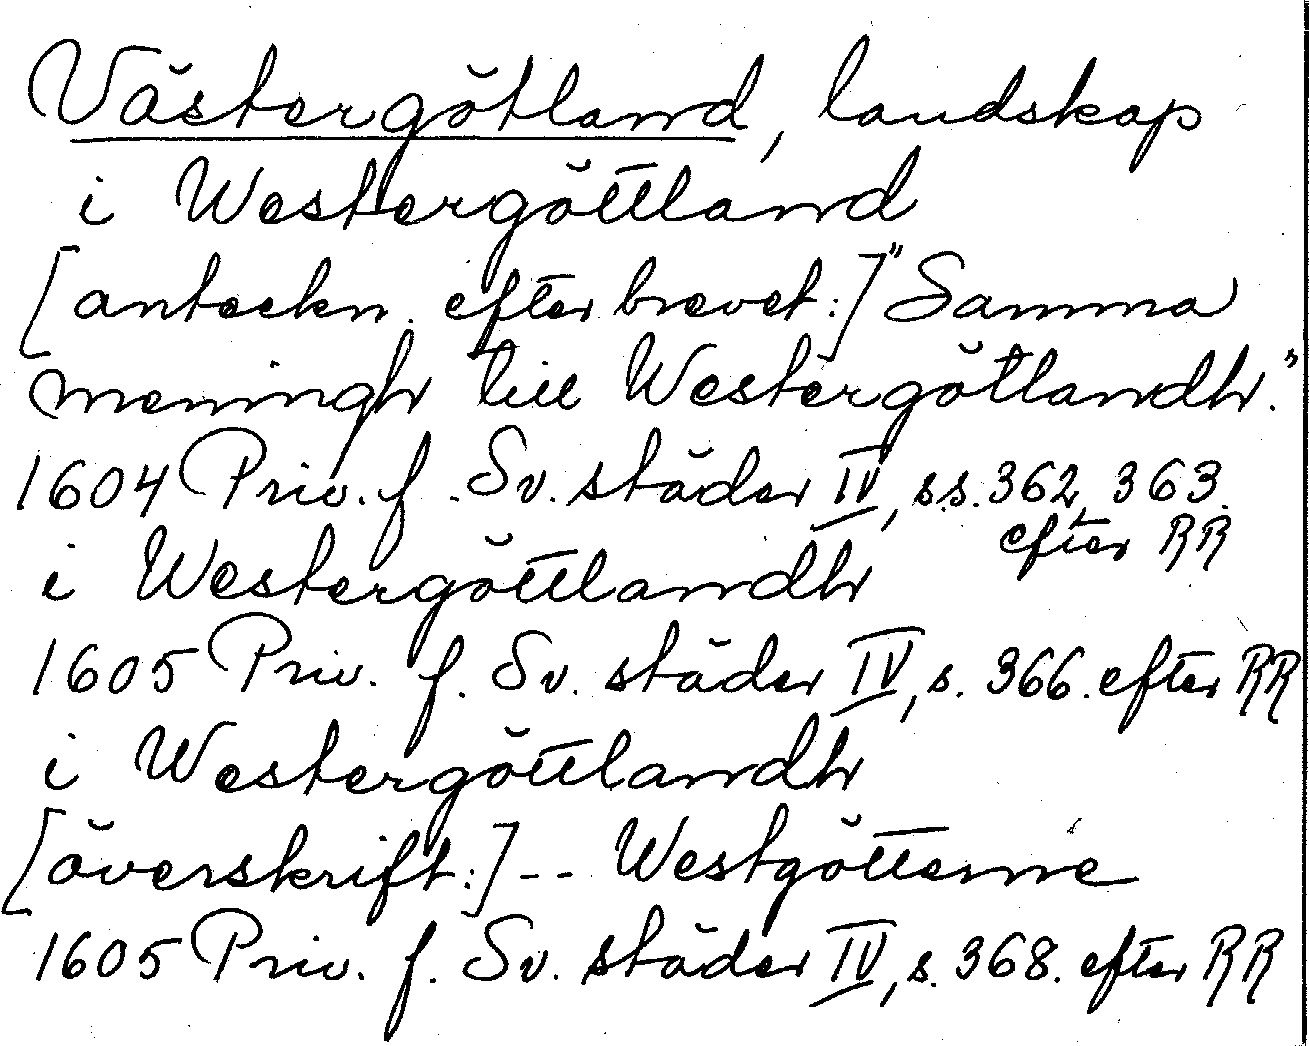 Västergötland, landskap
i Westergöttland
[anteckn. efter brevet:] "Samma
meningh till Westergötlandh."
1604 Priv. f. Sv. städer IV, s.s. 362, 363.
efter RR
i Westergöttlandh
1605 Priv. f. Sv. städer IV, s. 366. efter RR
i Westergöttlandh
[överskrift:] -- Westgötterne
1605 Priv. f. Sv. städer IV, s. 368. efter RR